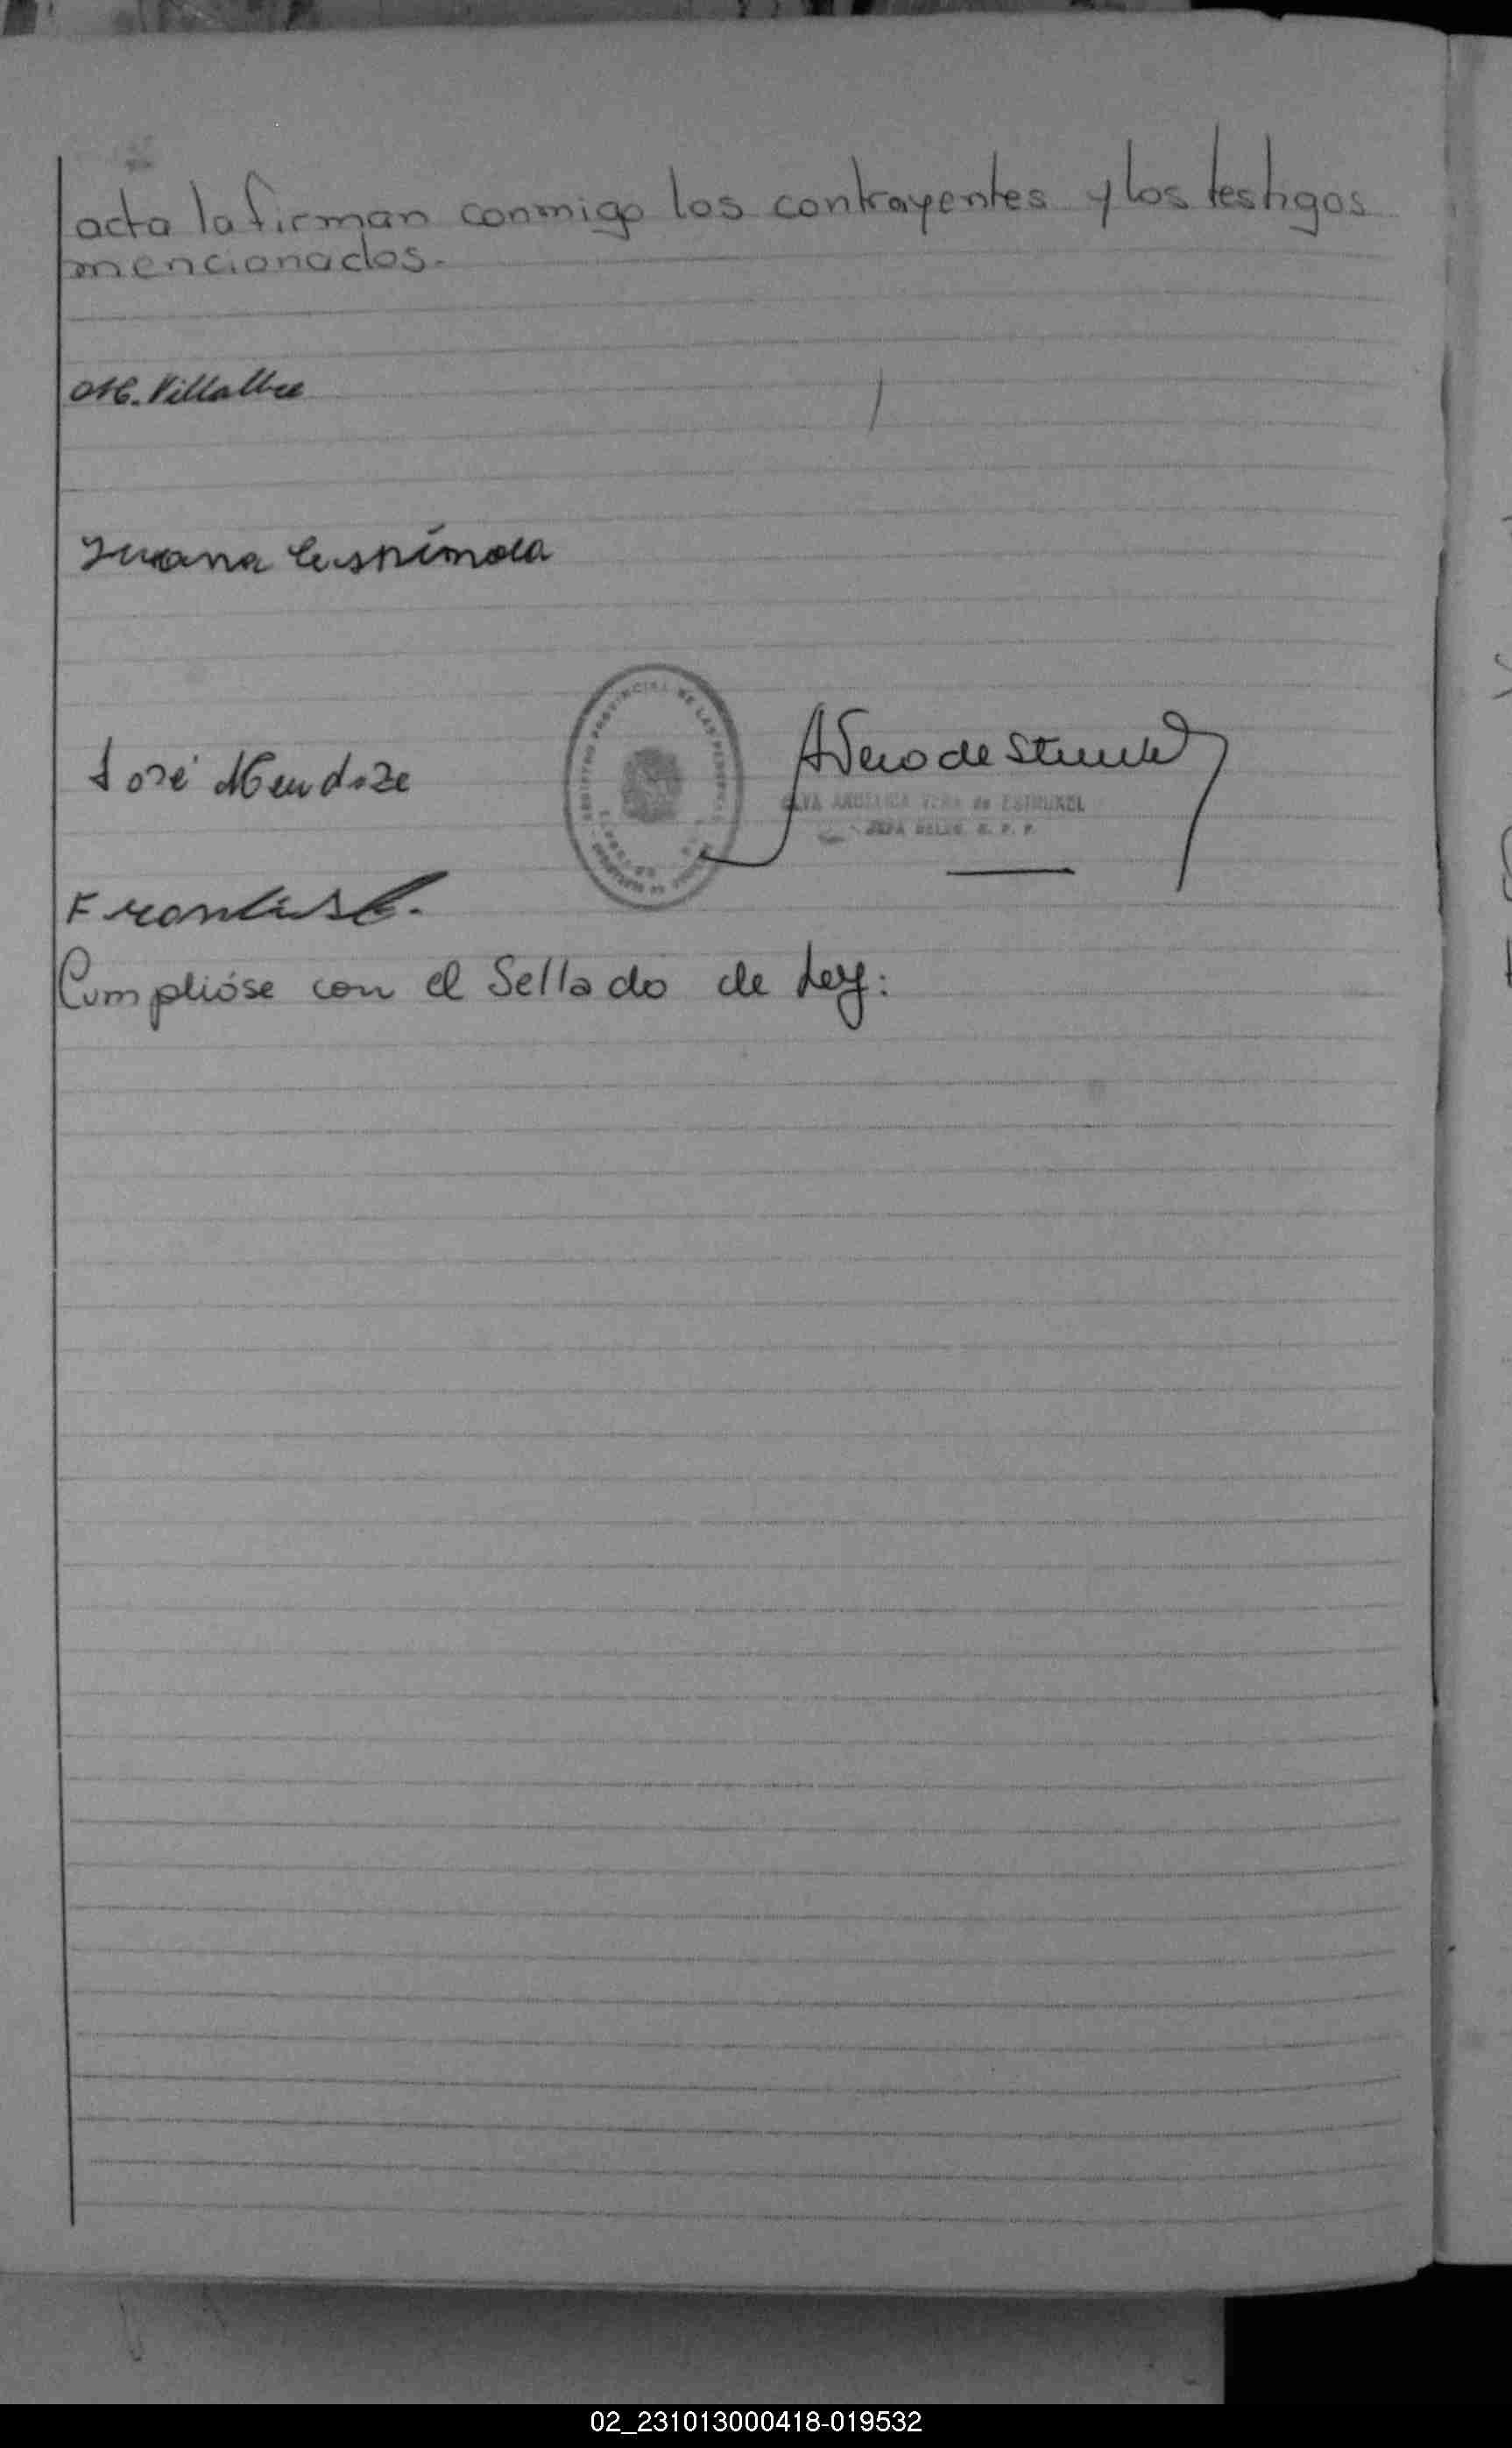 acta la firman conmigo los contrayentes y los testigos
mencionados.-
M. Villalba
Juana Espínola
REGISTRO PROVINCIAL DE LAS PERSONAS
A Vera de Struxel
ELVA ANGELICA VERA de ESTRUXEL
JEFA DELEG. R. P. P.
José Mendoze
Cumplióse con el Sellado de Ley:
02_231013000418-019532